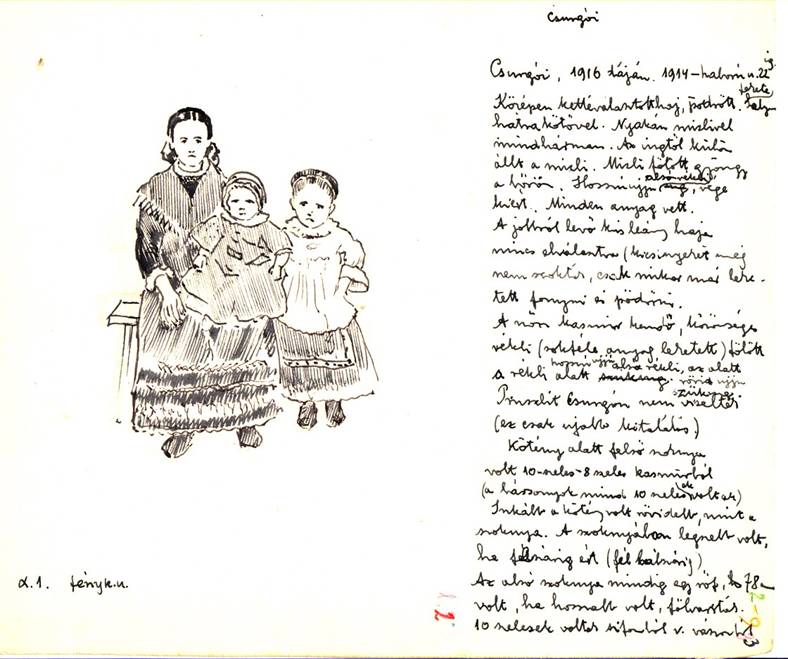 Csurgói
Csurgói, 1916 táján. 1914-háború u. 22 ig.
fekete
Középen kettéválasztott haj, pödrött.
hátrakötővel. Nyakán mislivel
mindhárman. Az ingtől külön
állt a misli. Misli fölött gyöngy
alsó rékli
a bőrön. Hosszú ujju ing, vége
kiért. Minden anyag vett.
A jobbról levő kis leány haja
nincs elválasztva (kicsinyeket még
nem szokták, csak mikor már lehe-
tett fonyni és pödörni.
A nőn kasmír kendő, közönséges
rékli (sokféle anyag lehetett) fölött
hosszú ujju alsó rékli, az alatt
a rékli alatt rövid ujju
szürking.
Pruszlit Csurgón nem viseltek
(ez csak ujabb kitalálás)
Kötény alatt felső szoknya
volt 10-szeles-8 szeles kasmírból
(a bársonyok mind 10 szelesek voltak)
Inkább a kötény volt rövidebb, mint a
szoknya. A szoknyában legszebb volt,
ha félszárig ért (fél lábszárig)
Az alsó szoknya mindig egy röf, 78
volt, ha hosszabb volt, fölvarrták.
10 szelesek voltak sifonból v. vászonból
d. 1. fényk. u.